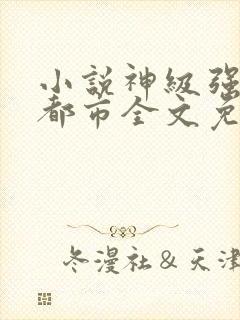 小説神級强
都市全文免
冬漫社＆天津